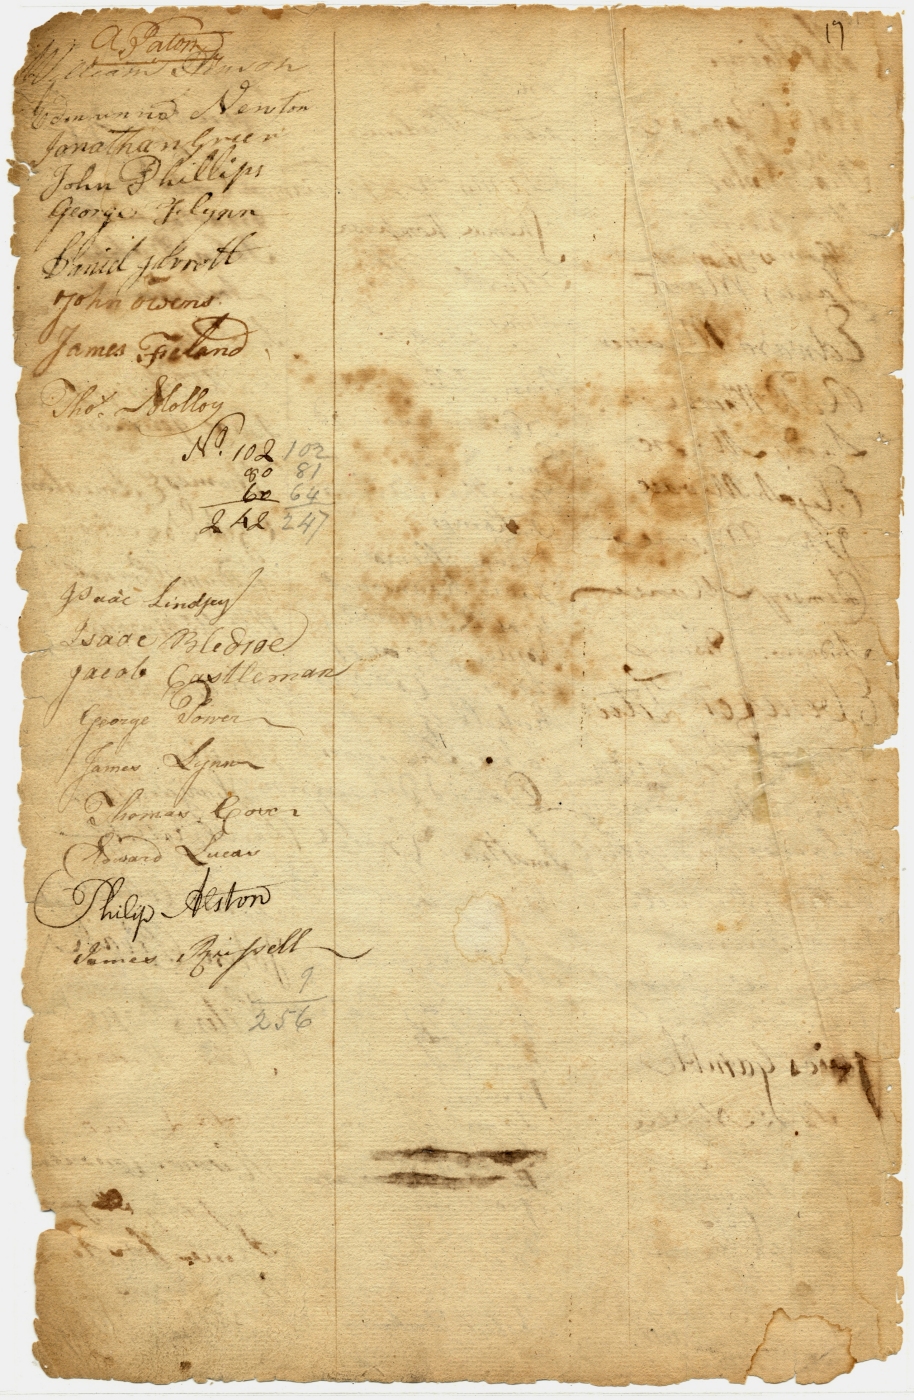 19
A, Paton
William
Edmunnd Newton
Jonathan Green
John Phillips
George Flynn
Daniel Jarrott
John Owens
James Freland
Thos. Molloy
No. 102 102
80 81
60 64
242 247
Isaac Lindsey
Isaac Bledsoe
Jacob Castleman
George Power
James Lynn
Thomas Cox
Edward Lucas
Philip Alston
James Russell
9
256